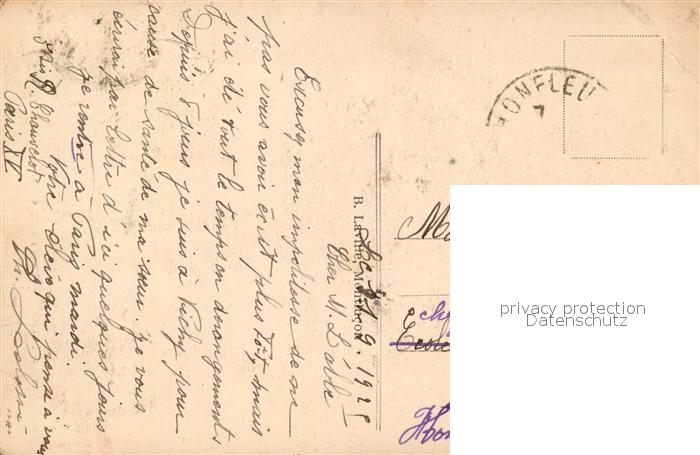 Le 1 9. 1925
Cher M. L'abbé
Excusez mon impolitesse de ne
pas vous avoir écrit plus tôt, mais
j'ai été tout le temps en dérangements
Depuis 8 jours je suis à Vichy pour
cause de santé de ma sœur. Je vous
écrirai par lettre d'ici quelques jours
je rentre à Paris mardi.
Votre élève qui pense à vous
R. Chauvelot
Paris XV
B. Moulinçon
HONFLEU
7
M
Ecole
Hon
privacy protection
Datenschutz